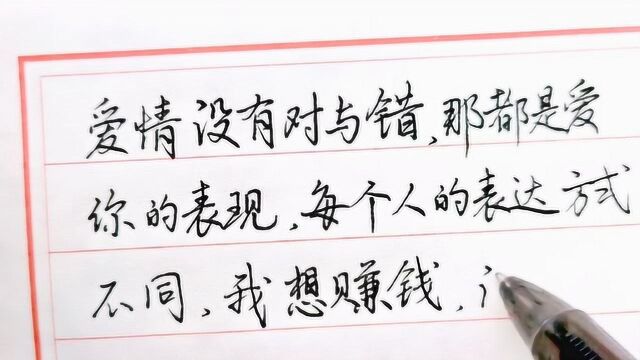 爱情没有对与错,那都是爱
你的表现,每个人的表达方式
不同,我想赚钱,